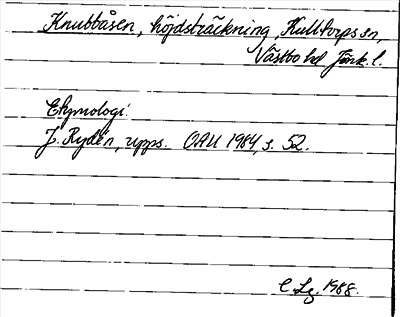 Knubbåsen, höjdsträckning, Kulltorps sn,
Västbo hd Jönk. l.
Etymologi:
J. Rydén, upps. OAU 1984, s. 52.
C Lg. 1988.